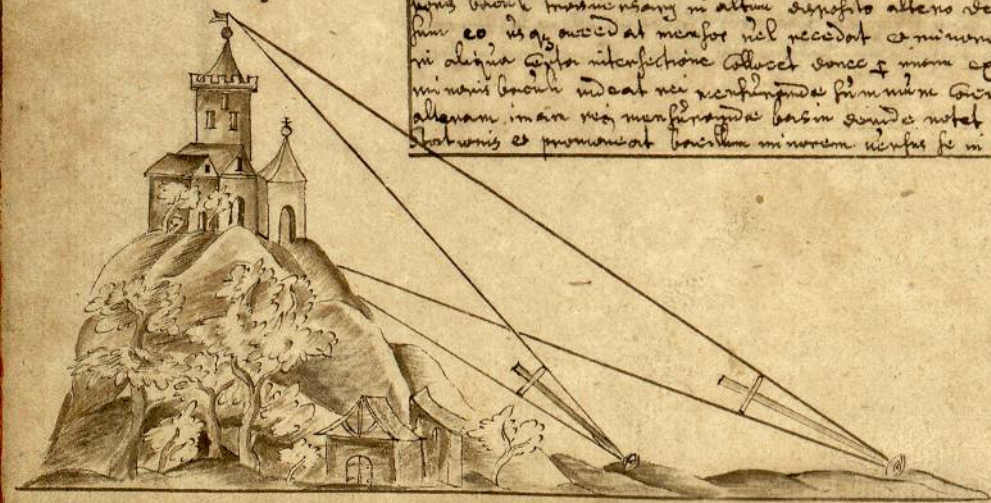 baculi in altum disposito altero de
sum eo usqz accedat mensor vel recedat et
in aliqua certa intersectione collocet donec p imam ex
minoris baculi videat rei mensurandae summum
alteram imam rei mensurandae basin deinde notet
stationis et promoveat bacillum minorem versus se in